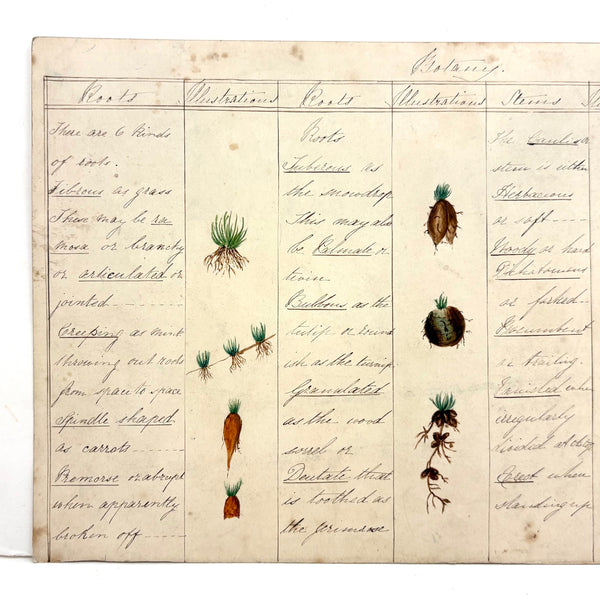 Botany.
Roots
There are 6 kinds
of roots.
Fibrous as grass
These may be ra
mosa or branchy
or articulated or
jointed
Creeping as mint
throwing out roots
from space to space
Spindle shaped
as carrots
Premorse or abrupt
when apparently
broken off
Illustrations
Roots
Roots
Tuberous as
the snowdrop
This may also
be Palmate or
twin
Bulbous as the
tulip or round
ish as the turnip
Granulated
as the wood
sorrel or
Dentate that
is toothed as
the primrose
Illustrations
Stems
The Caulis or
stem is either
Herbaceous
or soft
Woody or hard
or forked
Procumbent
or trailing
when
irregularly
divided at the top
Erect when
standing up